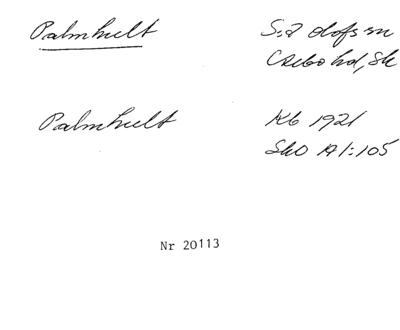 Palmhult
S:a olofs sn
Csebo hd, Sk
Palmhult Kb 1921
SkO A1:105
Nr 20113